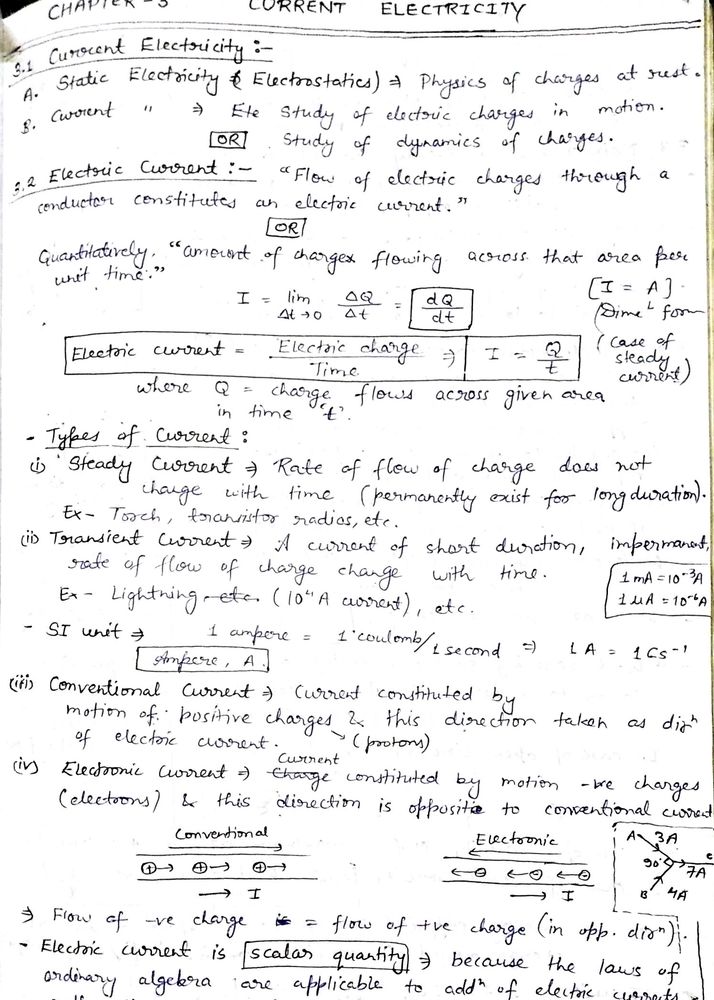 CHAPTER - 3 CURRENT ELECTRICITY
3.1 Current Electricity :-
A. Static Electricity (Electrostatics) ⇒ Physics of charges at rest.
B. Current " ⇒ Ete Study of electric charges in motion.
OR Study of dynamics of charges.
3.2 Electric Current :- "Flow of electric charges through a
conductor constitutes an electric current."
OR
Quantitatively, "amount of charges flowing across that area per
unit time."
I = lim Δt→0 ΔQ/Δt = dQ/dt
[I = A]
(Dime^L form
Electric current = Electric charge / Time ⇒ I = Q/t
(Case of
steady
current)
where Q = charge flows across given area
in time 't'.
- Types of Current :
(i) Steady Current ⇒ Rate of flow of charge does not
change with time (permanently exist for long duration).
Ex- Torch, transistor radios, etc.
(ii) Transient Current ⇒ A current of short duration, impermanent,
rate of flow of charge change with time.
Ex- Lightning etc. (10^4 A current), etc.
1 mA = 10^-3 A
1 μA = 10^-6 A
- SI unit ⇒ 1 ampere = 1 coulomb/1 second ⇒ 1 A = 1 Cs^-1
Ampere, A.
(iii) Conventional Current ⇒ Current constituted by
motion of positive charges & this direction taken as dir^n
of electric current. → (protons)
Current
(iv) Electronic Current ⇒ Charge constituted by motion -ve charges
(electrons) & this direction is opposite to conventional current
Conventional
+ + +
→ I
Electronic
- - -
→ I
A 3A
90° C
7A
B 4A
⇒ Flow of -ve charge is = flow of +ve charge (in opp. dir^n).
- Electric current is scalar quantity ⇒ because the laws of
ordinary algebra are applicable to add^n of electric currents.